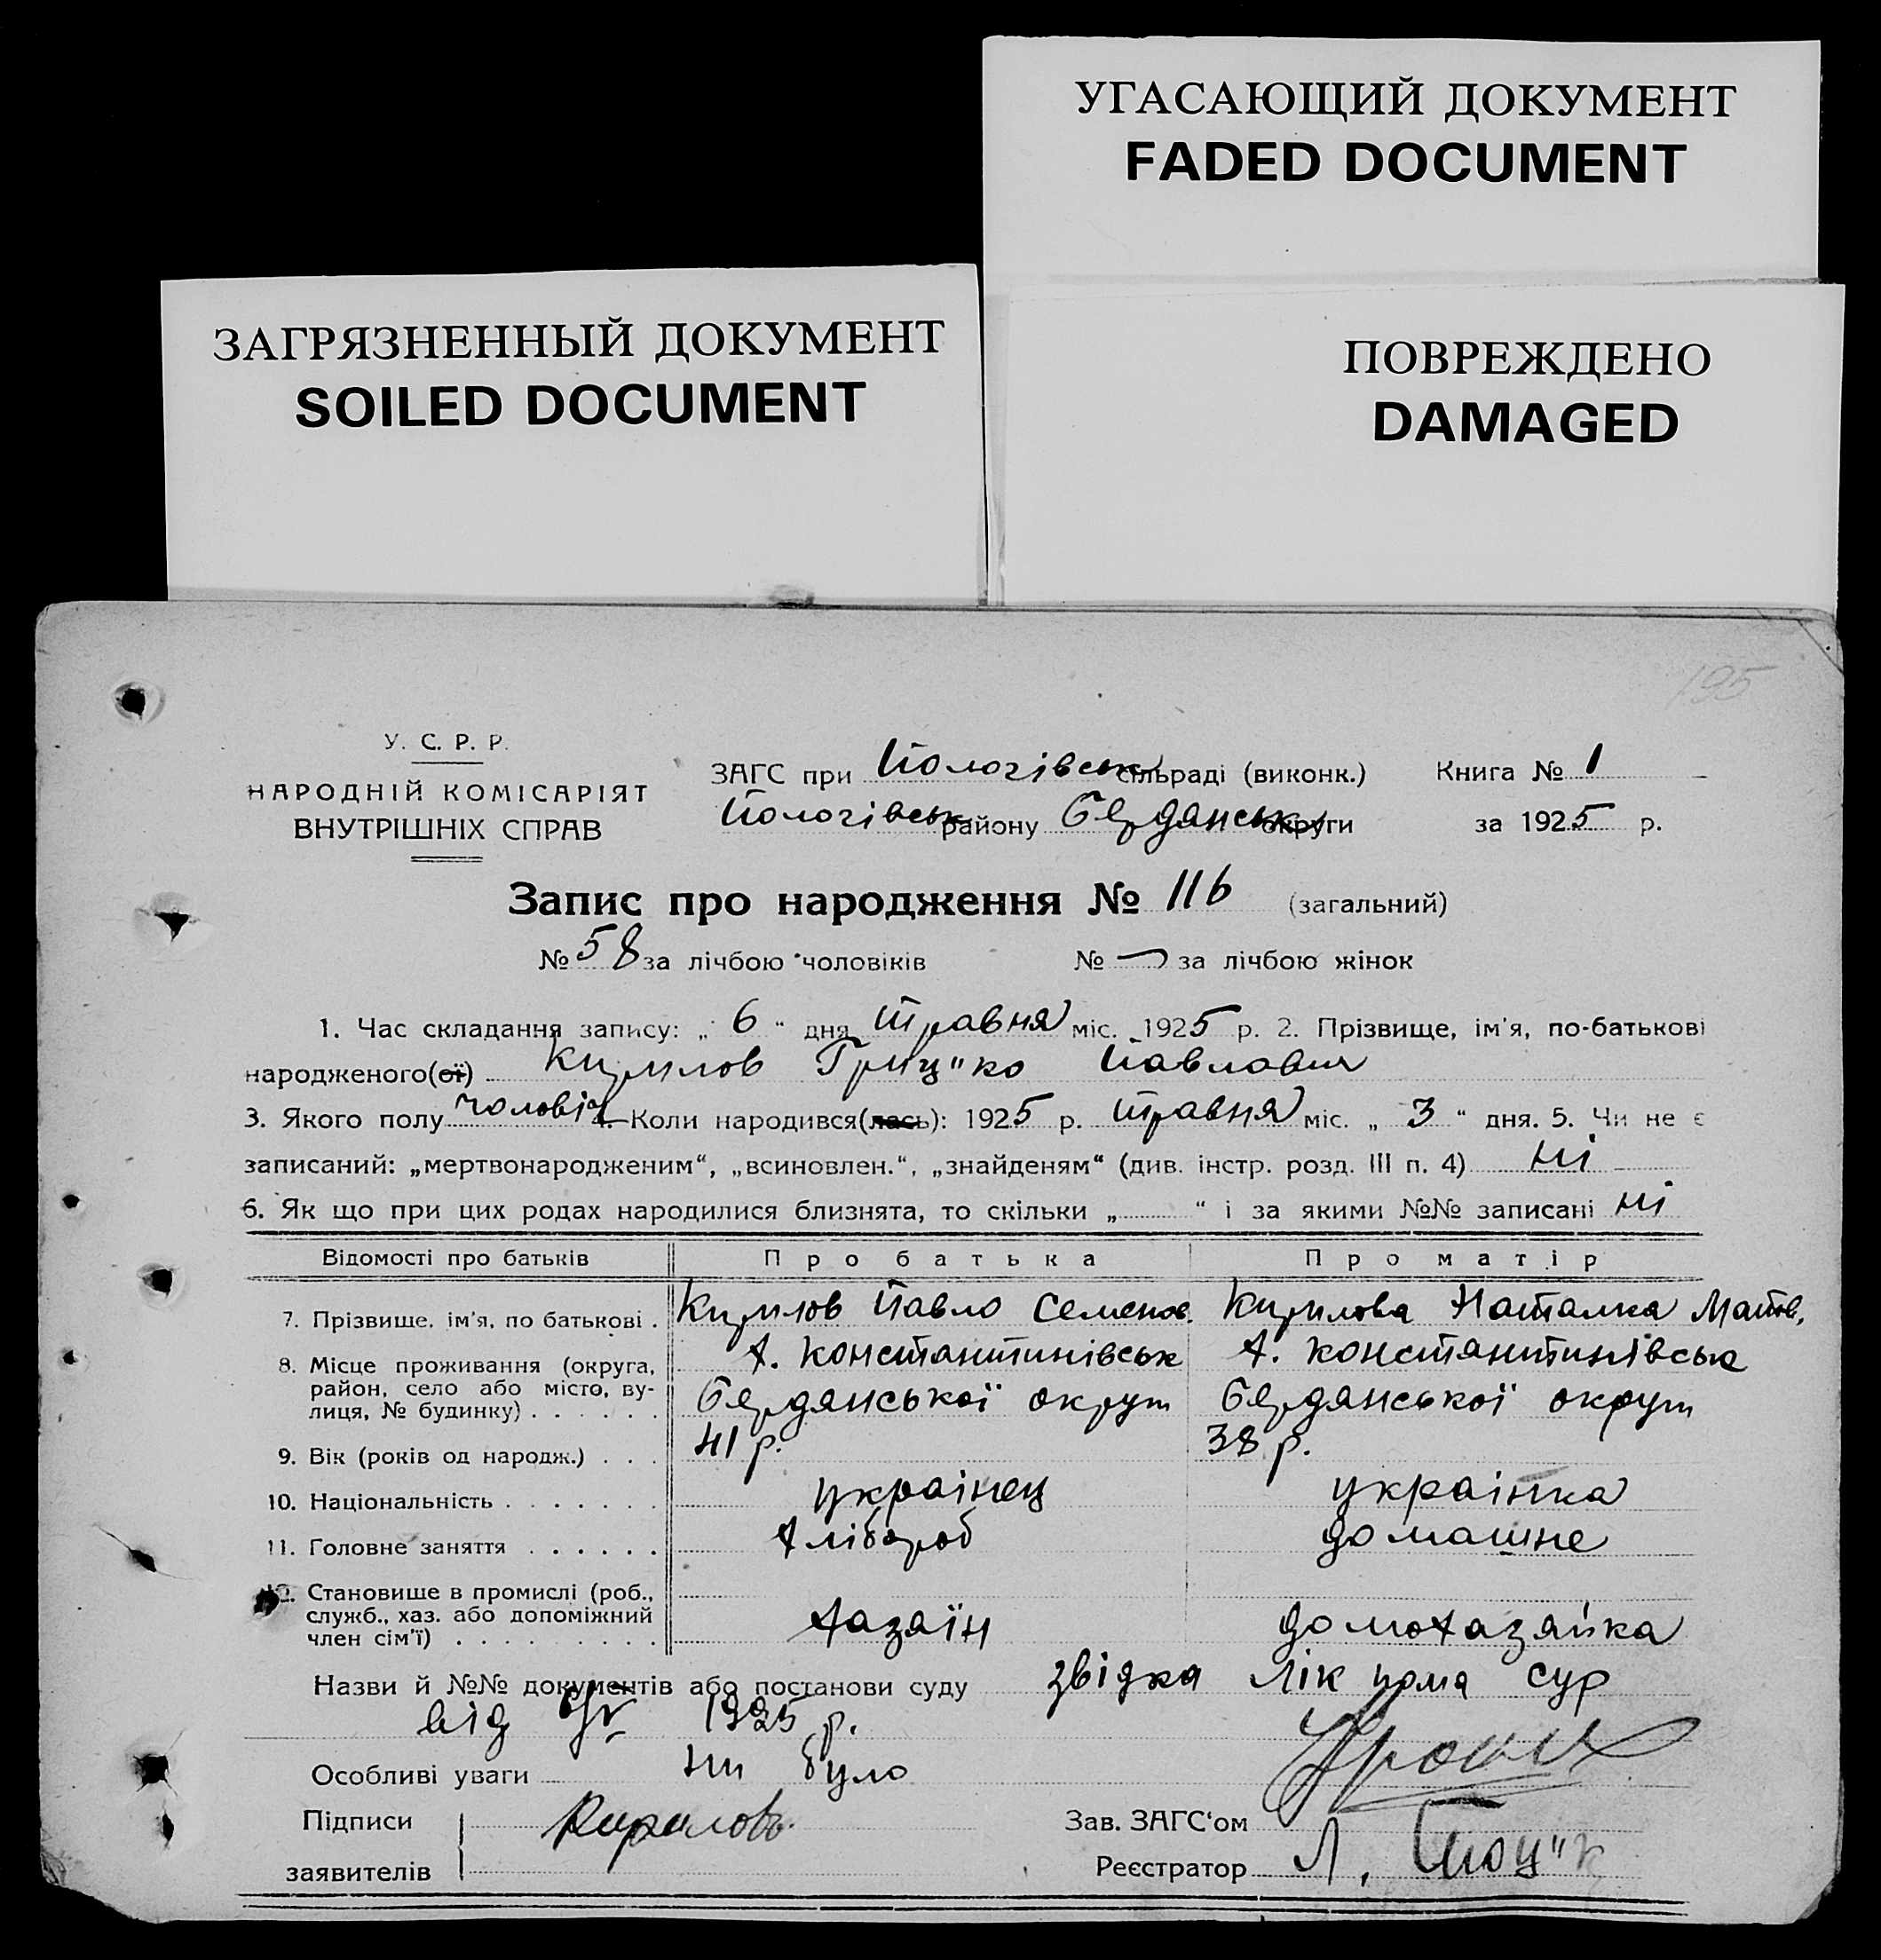 УГАСАЮЩИЙ ДОКУМЕНТ
FADED DOCUMENT
ЗАГРЯЗНЕННЫЙ ДОКУМЕНТ
SOILED DOCUMENT
ПОВРЕЖДЕНО
DAMAGED
195
У. С. Р. Р.
НАРОДНІЙ КОМІСАРІЯТ
ВНУТРІШНІХ СПРАВ
ЗАГС при Пологівськ сільраді (виконк.) Книга № 1
Пологівськ району Бердянськ округи за 1925 р.
Запис про народження № 116 (загальний)
№ 58 за лічбою чоловіків № — за лічбою жінок
1. Час складання запису: „ 6 “ дня травня міс. 1925 р. 2. Прізвище, ім'я, по-батькові
народженого(ої) Кирилов Гриц"ко Павлович
3. Якого полу чоловіч 4. Коли народився(лась): 1925 р. травня міс. „ 3 “ дня. 5. Чи не є
записаний: „мертвонародженим“, „всиновлен.“, „знайденям“ (див. інстр. розд. III п. 4) ні
6. Як що при цих родах народилися близнята, то скільки „ “ і за якими №№ записані ні
Відомості про батьків Про батька Про матір
7. Прізвище, ім'я, по батькові . Кирилов Павло Семенов. Кирилова Наталка Матв.
8. Місце проживання (округа, район, село або місто, вулиця, № будинку) . . . . . . х. Константинівськ Бердянської округи х. Константинівськ Бердянської округи
9. Вік (років од народж.) . . . 41 р. 38 р.
10. Національність . . . . . . . українец українка
11. Головне заняття . . . . . . хлібороб домашне
12. Становище в промислі (роб., служб., хаз. або допоміжний член сім'ї) . . . . . . . . . хазяїн домохазяйка
Назви й №№ документів або постанови суду звідка Лік пома
від 1925 р.
Особливі уваги ни було
Підписи
заявителів Кирилов
Зав. ЗАГС'ом
Реєстратор Л.